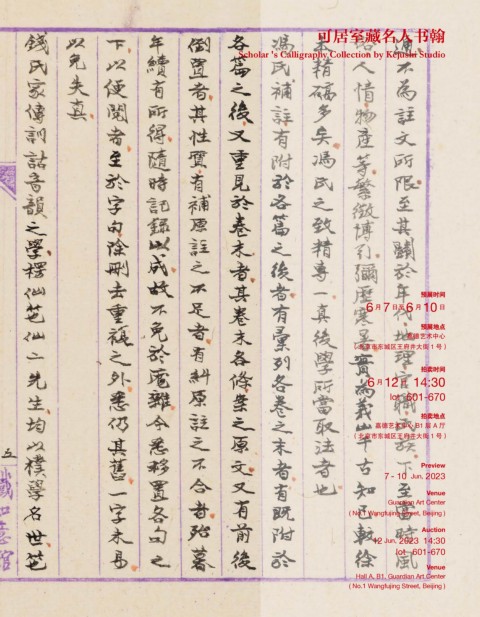 可居室藏名人书翰
Scholar's Calligraphy Collection by Kejushi Studio
通不為註文所限至其關於年代地理官職氏族下至當時風
俗人情物產等繁徵博引彌歷寒暑實為義山千古知己較徐
本精碻多矣馮氏之致精專一真後學所當取法者也
馮氏補註有附於各篇之後者有彙列各卷之末者有既附於
各篇之後又重見於卷末者其卷末各條案之原文又有前後
倒置者其性質有補原註之不足者有糾原註之不合者殆暮
年續有所得隨時記錄以成故不免於厖雜今悉移置各句之
下以便閱者至於字句除刪去重複之外悉仍其舊一字未易
以免失真
錢氏家傳訓詁音韻之學楞仙笆仙二先生均以樸學名世笆
五
预展时间
6月7日至6月10日
预展地点
嘉德艺术中心
（北京市东城区王府井大街1号）
拍卖时间
6月12日 14:30
lot 601-670
拍卖地点
嘉德艺术中心 B1层A厅
（北京市东城区王府井大街1号）
Preview
7 - 10 Jun, 2023
Venue
Guardian Art Center
( No.1 Wangfujing Street, Beijing )
Auction
12 Jun, 2023 14:30
lot 601-670
Venue
Hall A, B1, Guardian Art Center
( No.1 Wangfujing Street, Beijing )